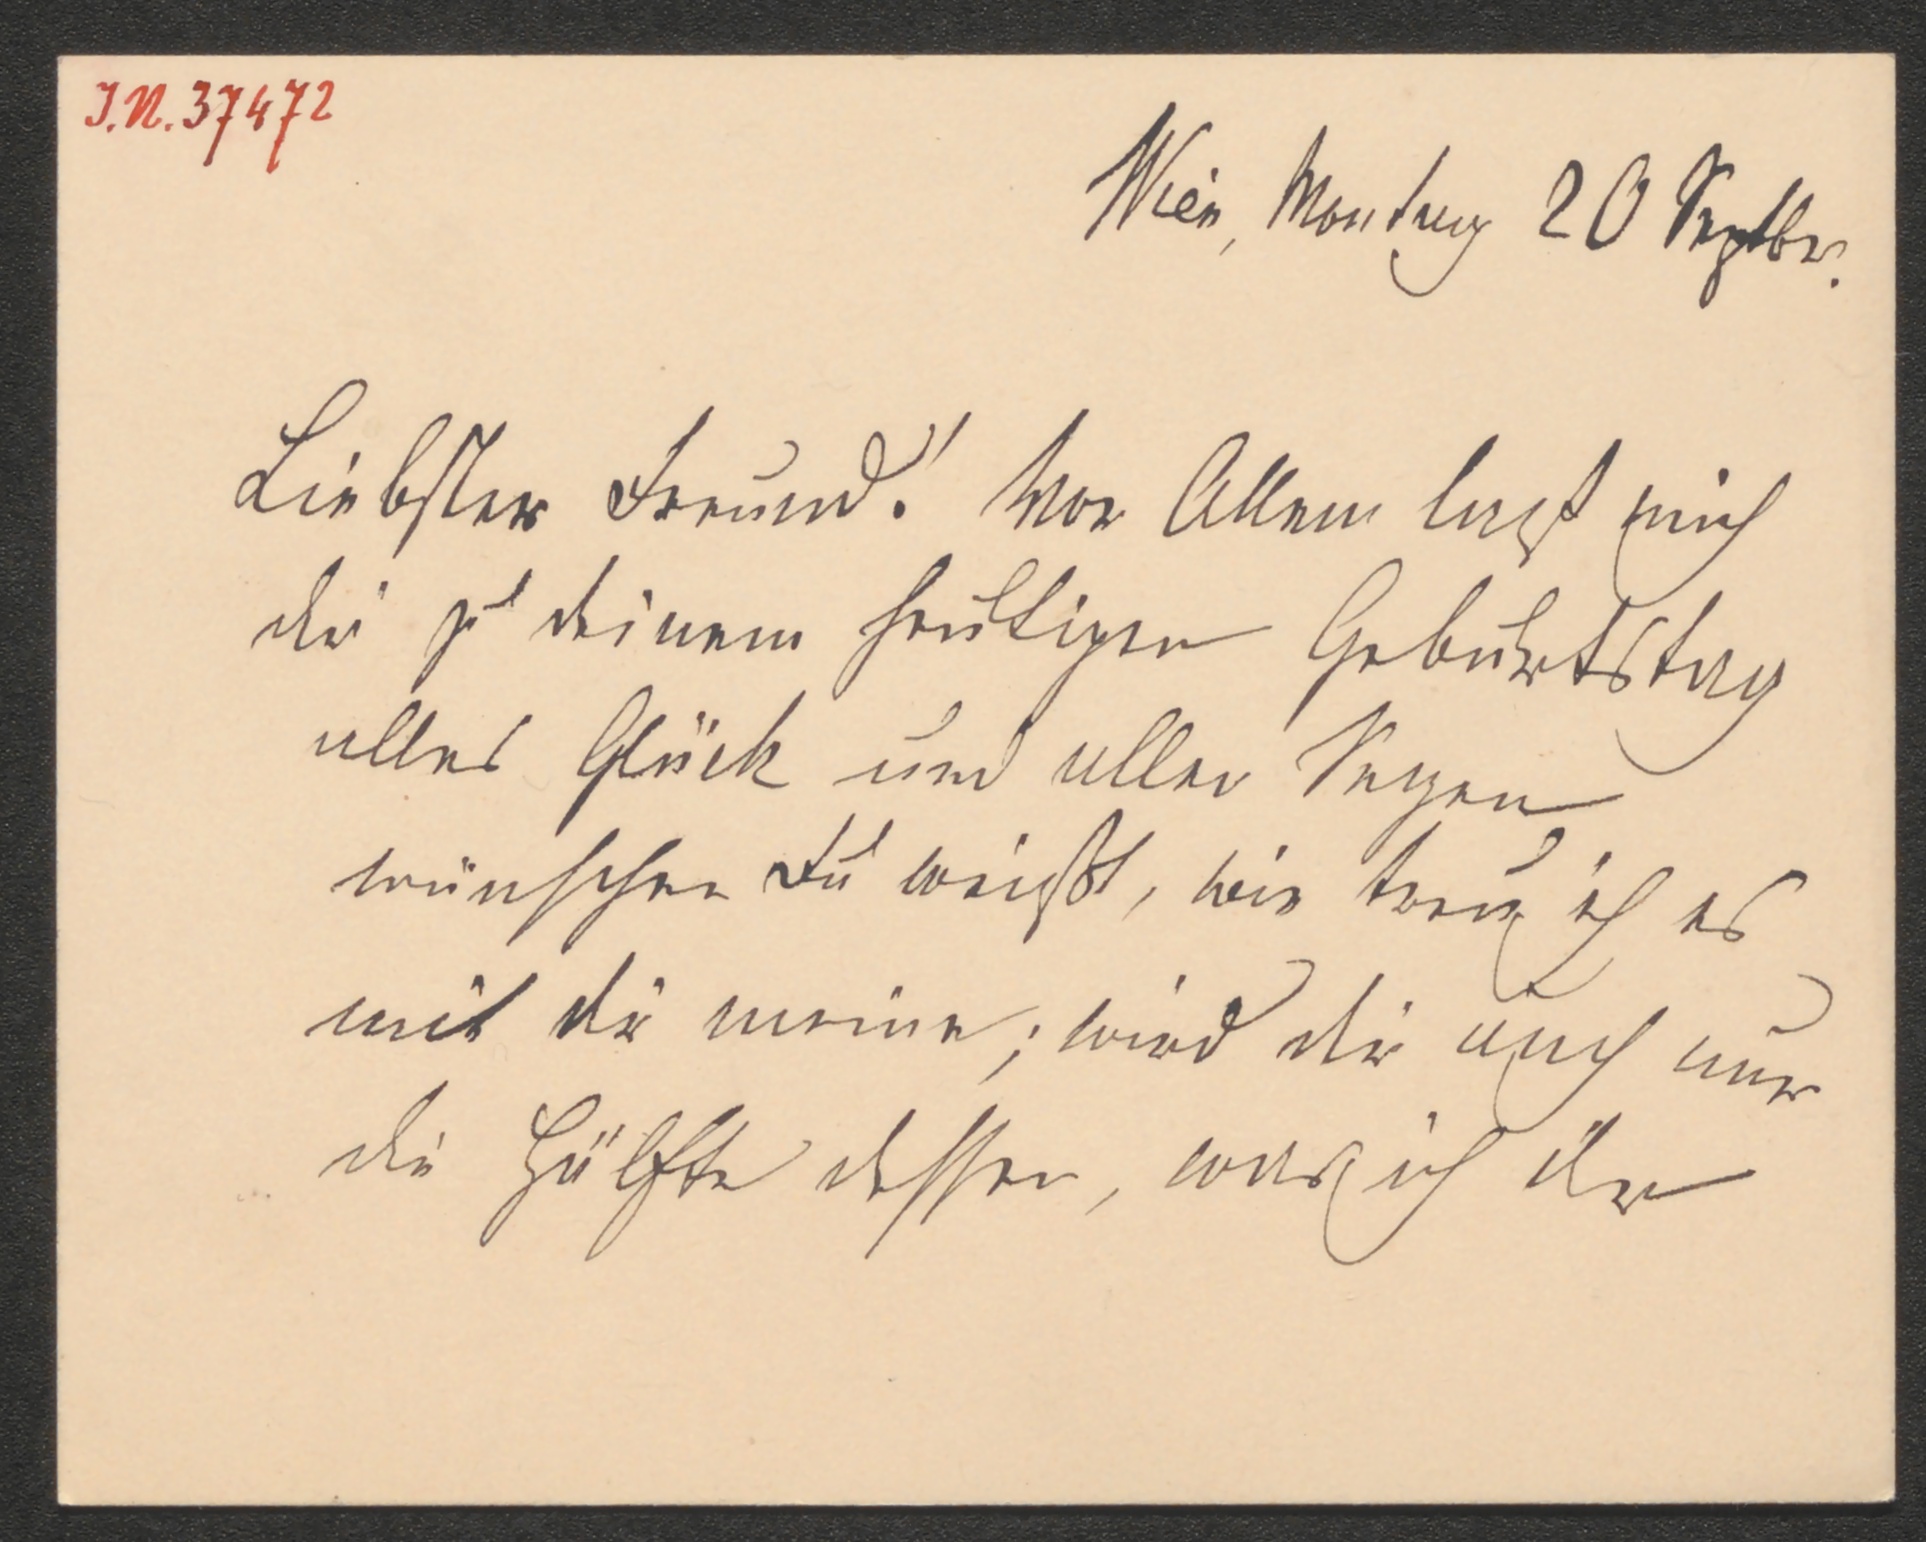 I.N. 37472
Wien, Montag 20 Septbr.
Liebster Freund! Vor Allem laß mich
dir zu deinem heutigen Geburtstag
alles Glück und allen Segen
wünschen Du weißt, wie treu ich es
mit dir meine; wird dir auch nur
die Hälfte dessen, was ich dir